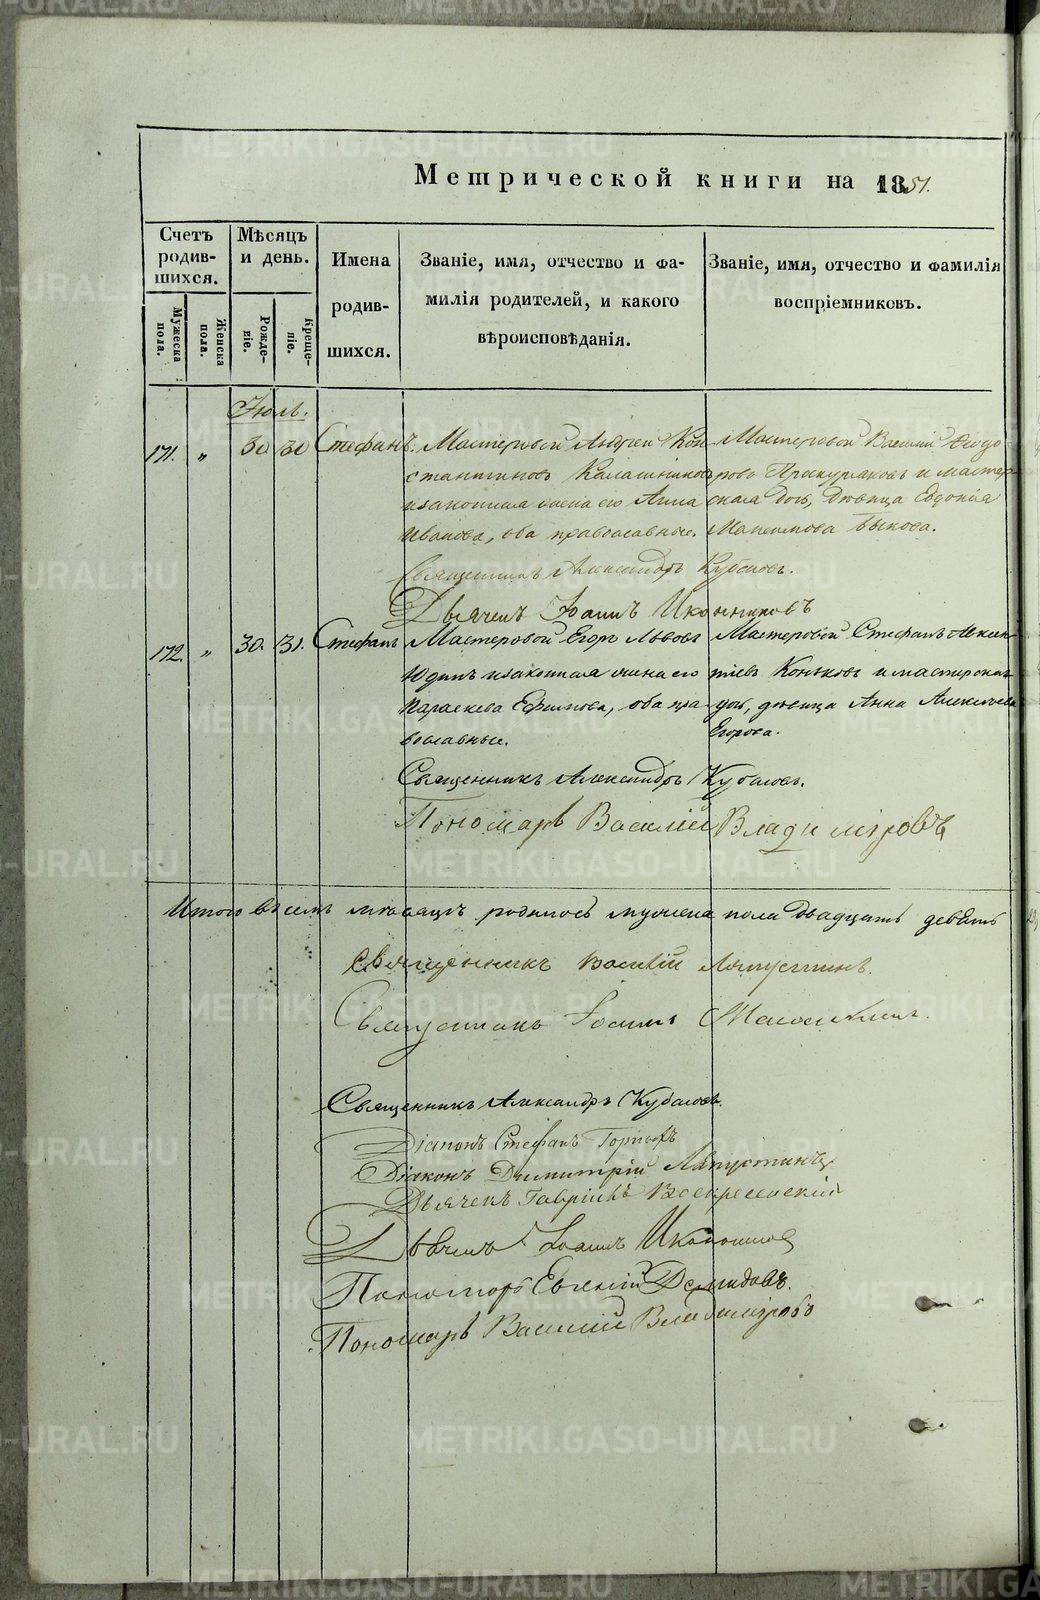 Метрической книги на 1851.
Счетъ родившихся.
Мужеска пола.
Женска пола.
Мѣсяцъ и день.
Рожденіе.
Крещеніе.
Имена родившихся.
Званіе, имя, отчество и фамилія родителей, и какого вѣроисповѣданія.
Званіе, имя, отчество и фамилія воспріемниковъ.
Іюль.
171. „ 30 30 Стефанъ.
Мастеровой Андрей Кон-
стантиновъ Калашниковъ
и законная жена его Анна
Иванова, оба православные.
Мастеровой Василій Ѳедо-
ровъ Проскуряковъ и мастер-
ская дочь, дѣвица Евдокія
Максимова Быкова.
Священникъ Александръ Кубасовъ.
Дьячекъ Іоаннъ Иконниковъ
172. „ 30. 31. Стефанъ
Мастеровой Егоръ Львовъ
Юдинъ и законная жена его
Параскева Ефимова, оба пра-
вославные.
Мастеровой Стефанъ
Коньковъ и мастерская
дочь, дѣвица Анна Алексѣева
Егорова.
Священникъ Александръ Кубасовъ.
Пономарь Василій Владиміровъ
Итого въ семъ мѣсяцѣ родилось мужеска пола двадцать девять
Священникъ Василій Ляпустинъ.
Священникъ Іоаннъ
Священникъ Александръ Кубасовъ.
Діаконъ Стефанъ
Діаконъ Димитрій Ляпустинъ
Дьячекъ Гавріилъ Воскресенскій
Дьячекъ Іоаннъ Иконниковъ
Пономарь Евгеній Демидовъ.
Пономарь Василій Владиміровъ
METRIKI.GASO-URAL.RU